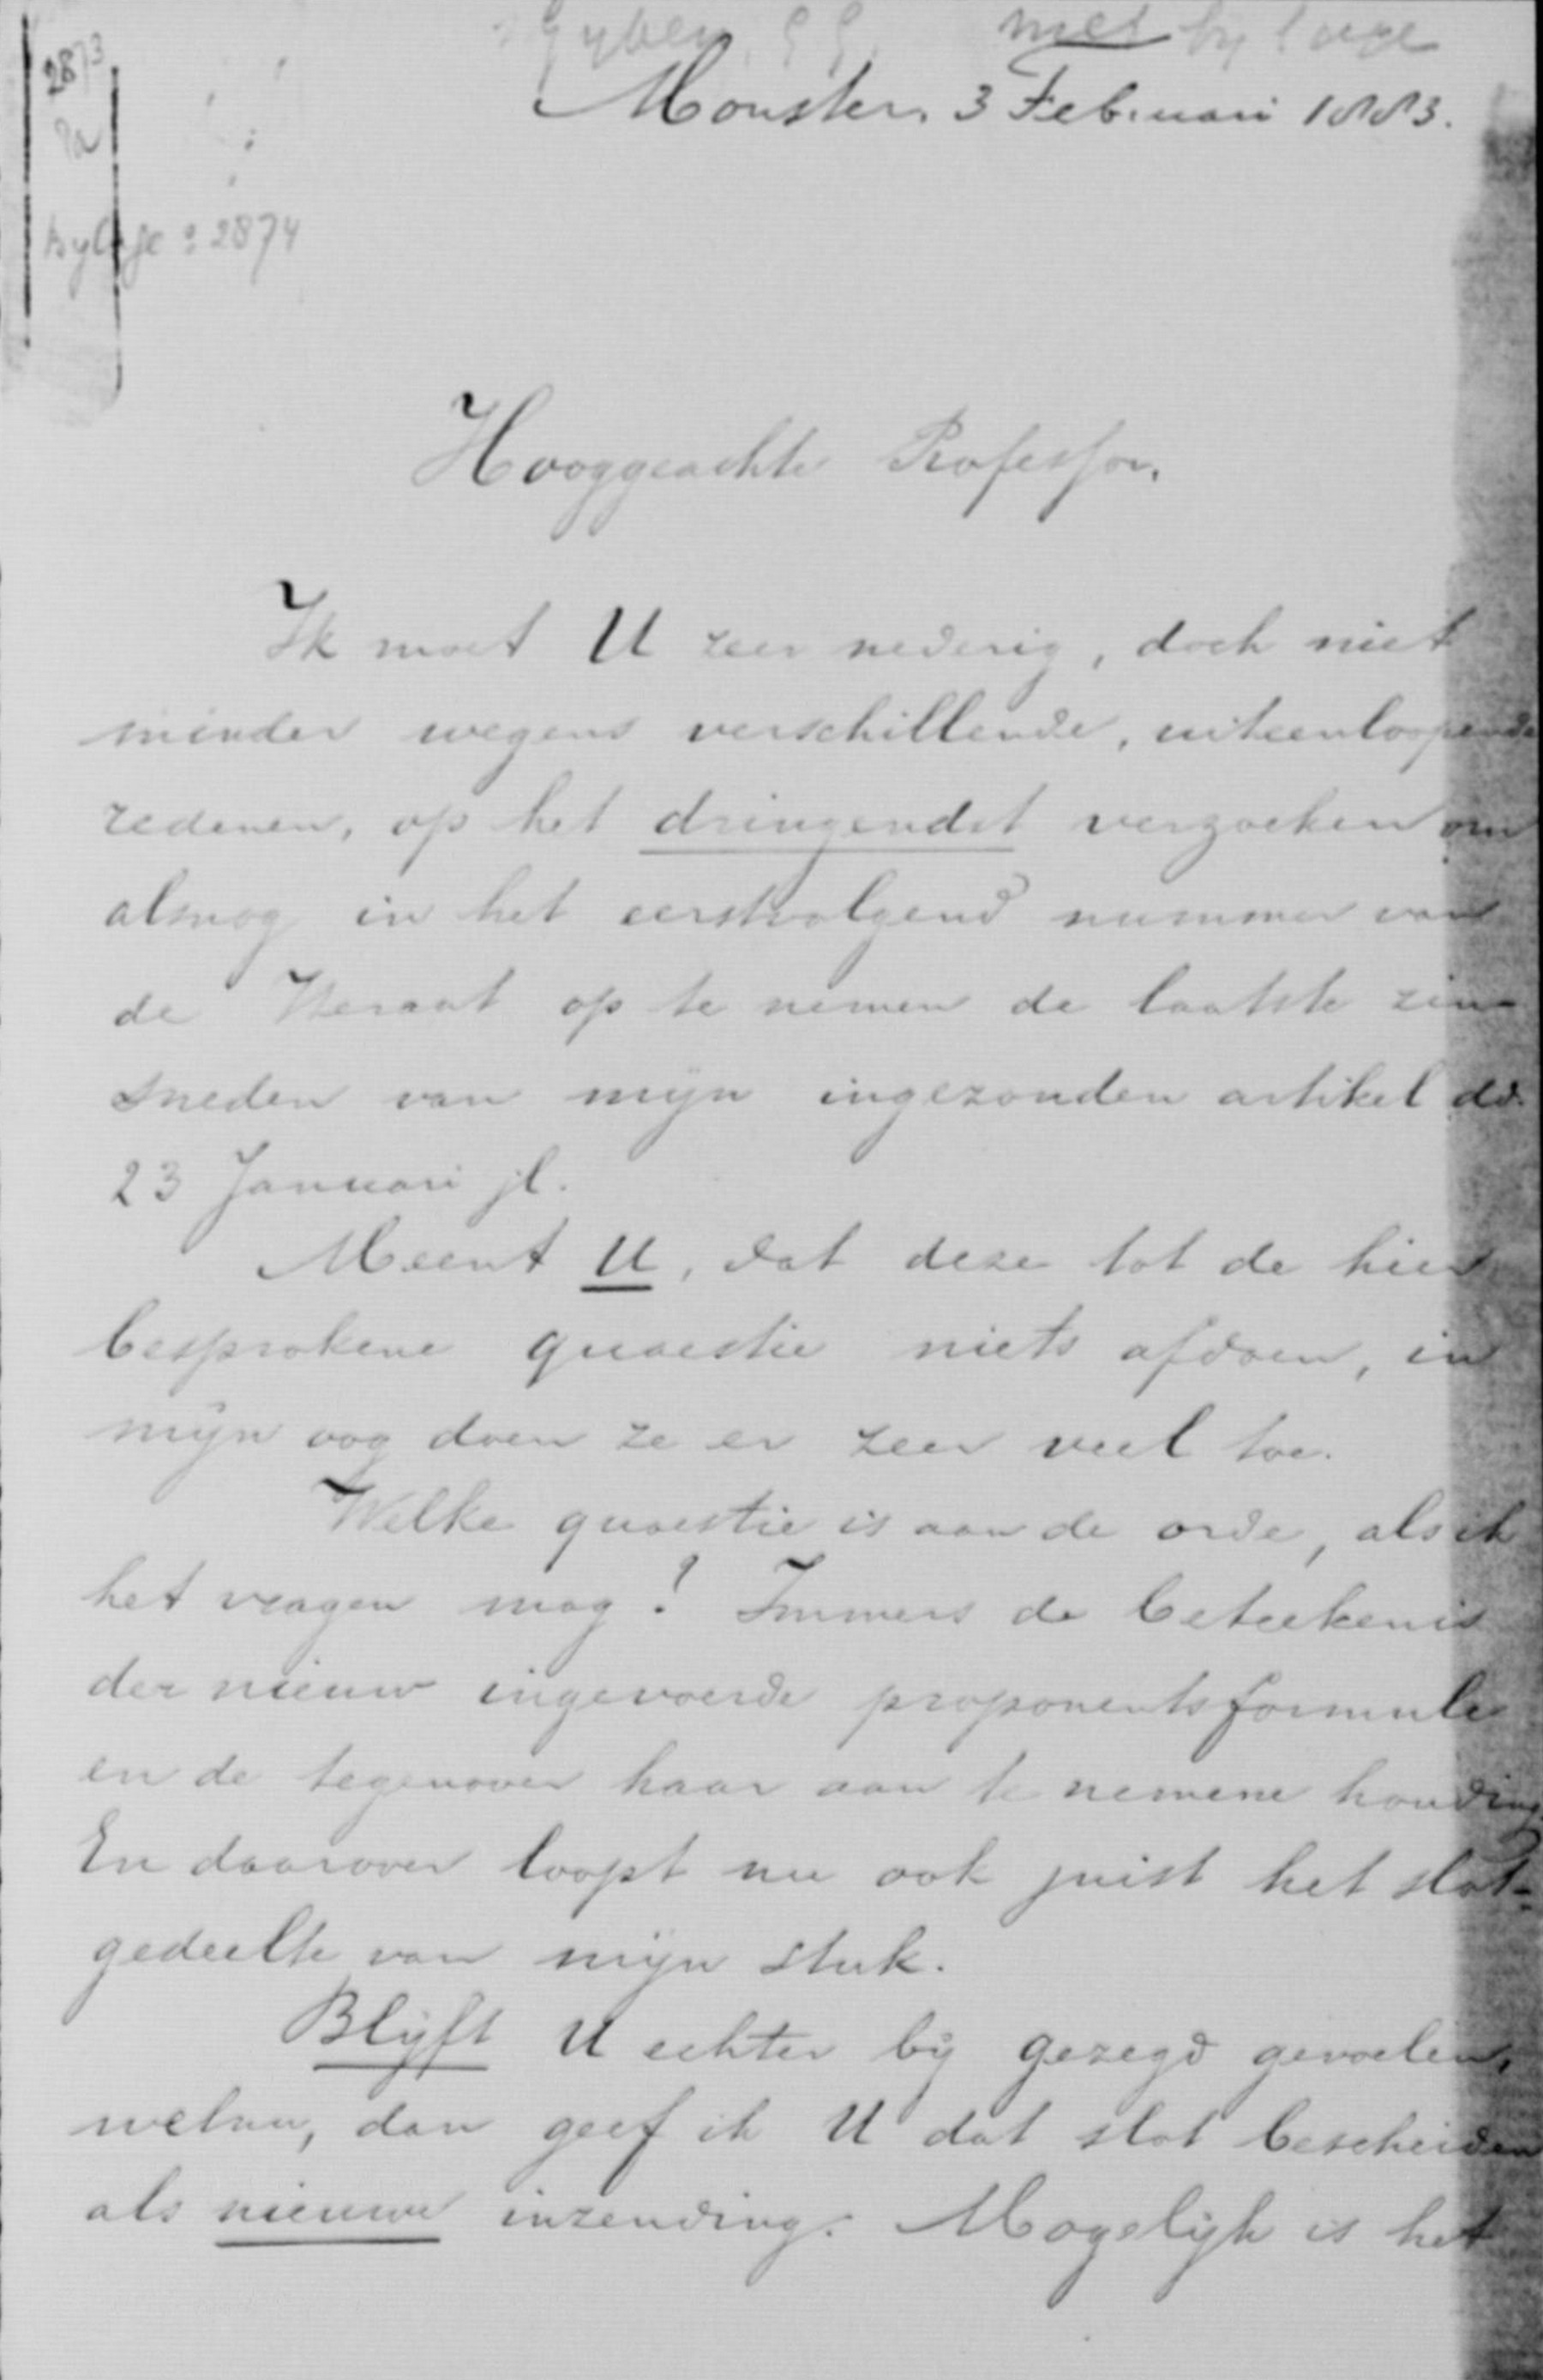 Gijben, G G. met bylage
2873
2a
Monster. 3 Februari 1883.
bylage : 2874
Hooggeachte Professor.
Ik moet U zeer nederig, doch niet
minder wegens verschillende, uiteenloopende
redenen, op het dringendst verzoeken om
alsnog in het eerstvolgend nummer van
de Heraut op te nemen de laatste zin-
sneden van mijn ingezonden artikel dd.
23 Januari jl.
Meent U, dat deze tot de hier
besprokene quaestie niets afdoen, in
mijn oog doen ze er zeer veel toe.
Welke quaestie is aan de orde, als ik
het vragen mag? Immers de beteekenis
der nieuw ingevoerde proponentsformule
en de tegenover haar aan te nemene houding.
En daarover loopt nu ook juist het slot-
gedeelte van mijn stuk.
Blijft U echter bij gezegd gevoelen,
welnu, dan geef ik U dat slot bescheiden
als nieuwe inzending. Mogelijk is het